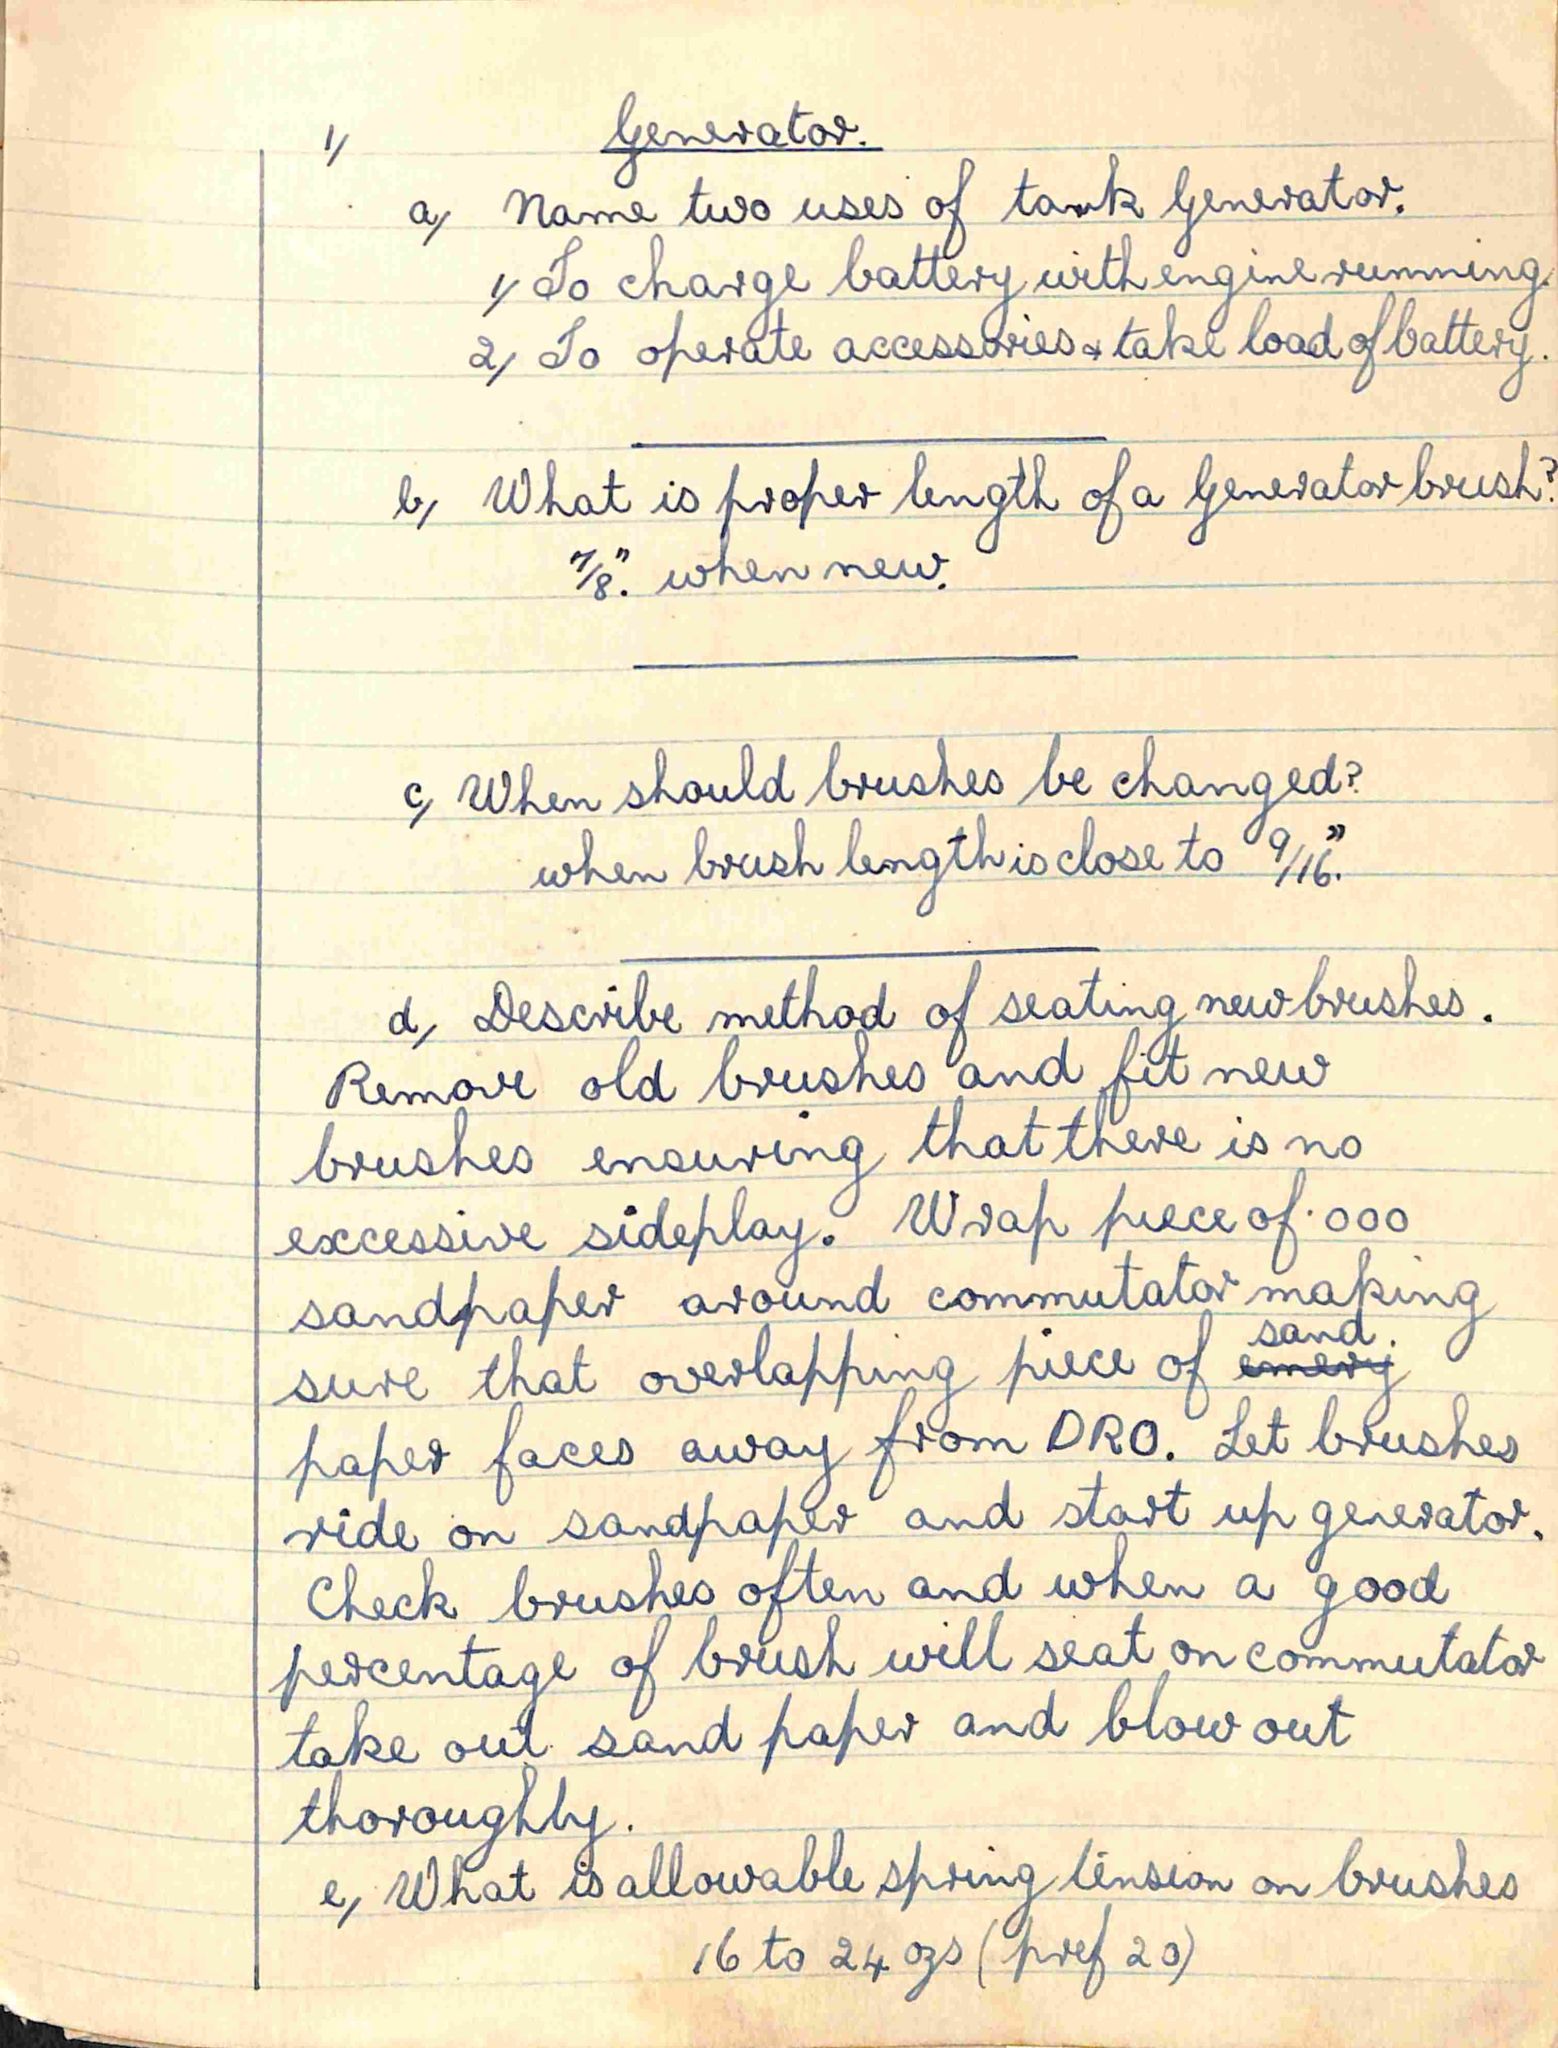 1/ Generator.
a/ Name two uses of tank Generator.
1/ To charge battery with engine running.
2/ To operate accessories & take load of battery.
b/ What is proper length of a Generator brush?
7/8". when new.
c/ When should brushes be changed?
when brush length is close to 9/16".
d/ Describe method of seating new brushes.
Remove old brushes and fit new
brushes ensuring that there is no
excessive sideplay. Wrap piece of .000
sandpaper around commutator making
sand.
sure that overlapping piece of emery
paper faces away from DRO. Let brushes
ride on sandpaper and start up generator.
Check brushes often and when a good
percentage of brush will seat on commutator
take out sand paper and blow out
thoroughly.
e/ What is allowable spring tension on brushes
16 to 24 ozs (pref 20)